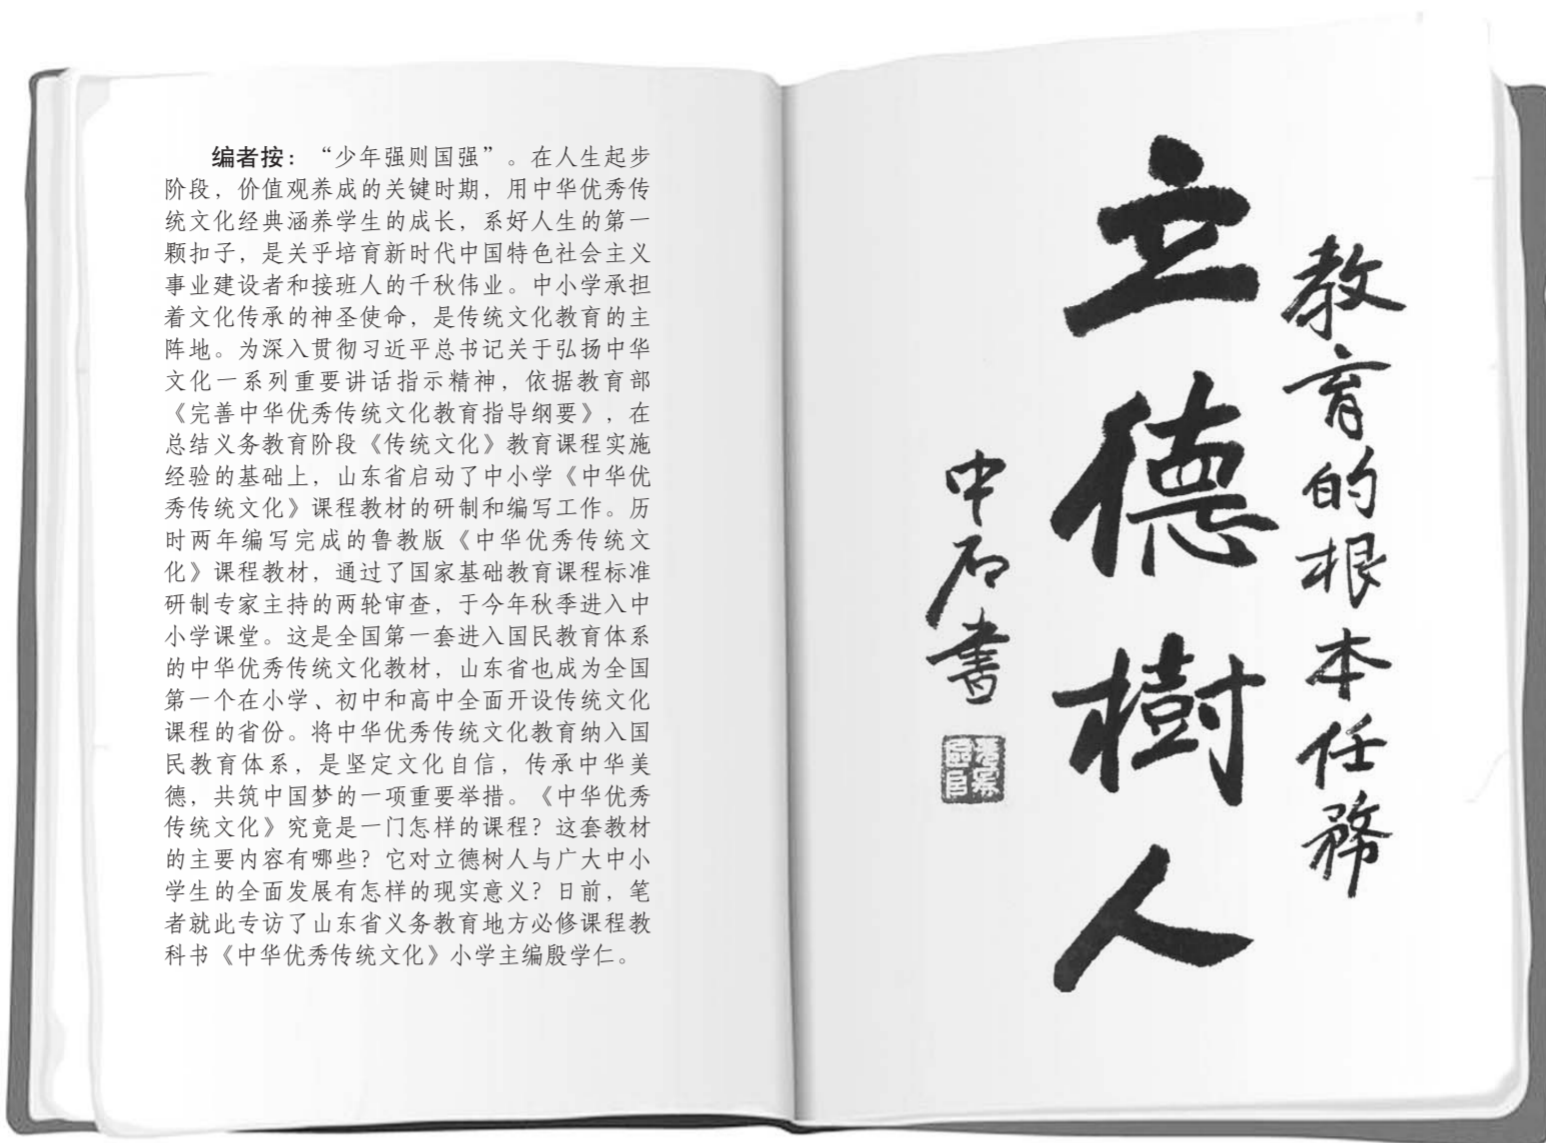 编者按：“少年强则国强”。在人生起步
阶段，价值观养成的关键时期，用中华优秀传
统文化经典涵养学生的成长，系好人生的第一
颗扣子，是关乎培育新时代中国特色社会主义
事业建设者和接班人的千秋伟业。中小学承担
着文化传承的神圣使命，是传统文化教育的主
阵地。为深入贯彻习近平总书记关于弘扬中华
文化一系列重要讲话指示精神，依据教育部
《完善中华优秀传统文化教育指导纲要》，在
总结义务教育阶段《传统文化》教育课程实施
经验的基础上，山东省启动了中小学《中华优
秀传统文化》课程教材的研制和编写工作。历
时两年编写完成的鲁教版《中华优秀传统文
化》课程教材，通过了国家基础教育课程标准
研制专家主持的两轮审查，于今年秋季进入中
小学课堂。这是全国第一套进入国民教育体系
的中华优秀传统文化教材，山东省也成为全国
第一个在小学、初中和高中全面开设传统文化
课程的省份。将中华优秀传统文化教育纳入国
民教育体系，是坚定文化自信，传承中华美
德，共筑中国梦的一项重要举措。《中华优秀
传统文化》究竟是一门怎样的课程？这套教材
的主要内容有哪些？它对立德树人与广大中小
学生的全面发展有怎样的现实意义？日前，笔
者就此专访了山东省义务教育地方必修课程教
科书《中华优秀传统文化》小学主编殷学仁。
教育的根本任務
立德樹人
中石書